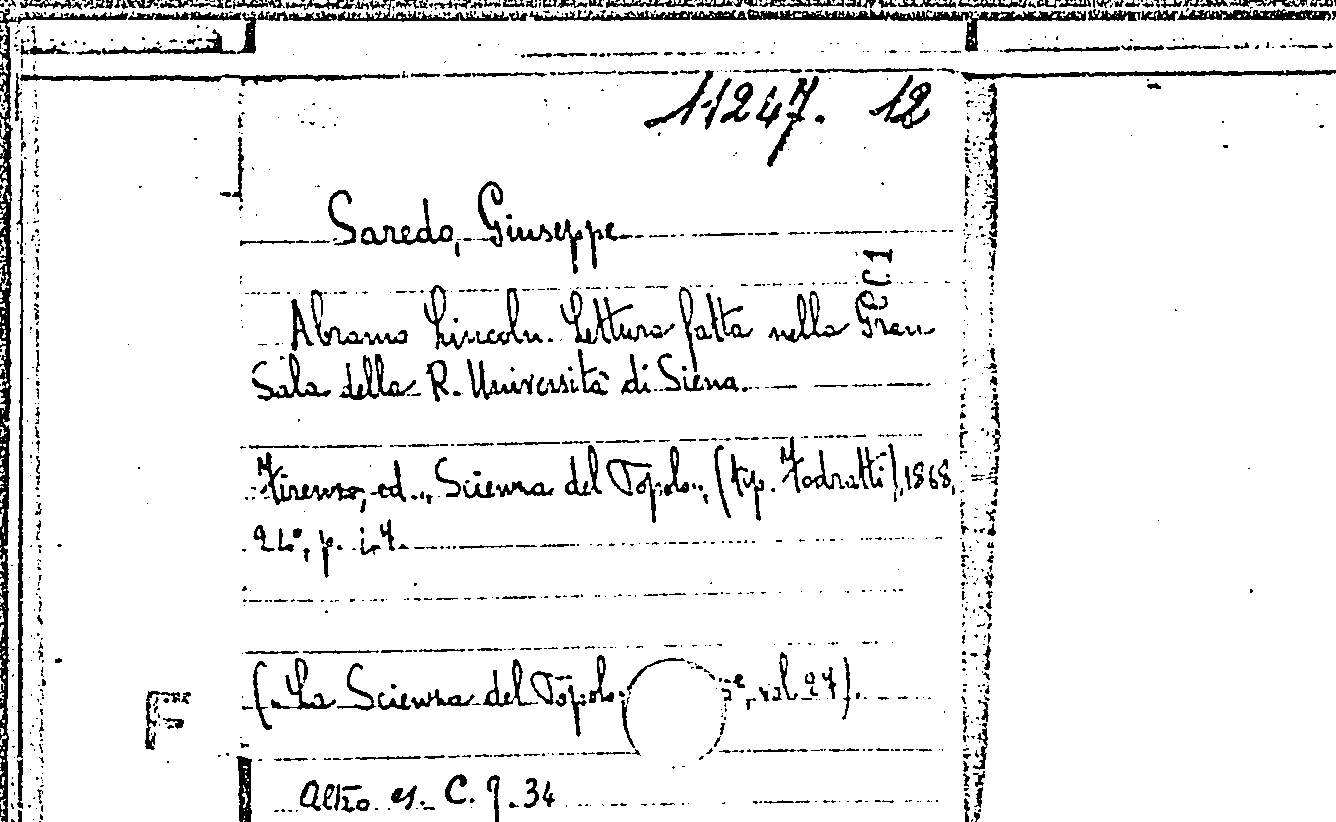 11247. 12
Saredo, Giuseppe
C.1
Abramo Lincoln. Lettura fatta nella Gran
Sala della R. Università di Siena.
Firenze, ed. „Scienza del Popolo„, (tip. Fodratti), 1868,
24°, p.
(„La Scienza del Popolo vol. 27).
F
Altro es. C. 9. 34